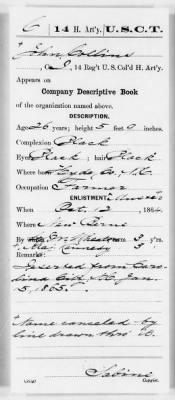 C 14 H. Art'y. U.S.C.T.
John Collins
, Co. I, 14 Reg't U.S. Col'd H. Art'y.
Appears on
Company Descriptive Book
of the organization named above.
DESCRIPTION.
Age 26 years; height 5 feet 9 inches.
Complexion Black
Eyes Black; hair Black
Where born Hyde Co. N.C.
Occupation Farmer
ENLISTMENT.
When Oct. 12, 1864.
Where New Berne
By term 3 y'rs.
Remarks:
Deserted from Caro-
lina City N.C. Jan.
5, 1865.
Name canceled by
line drawn thro' it.
Copyist.